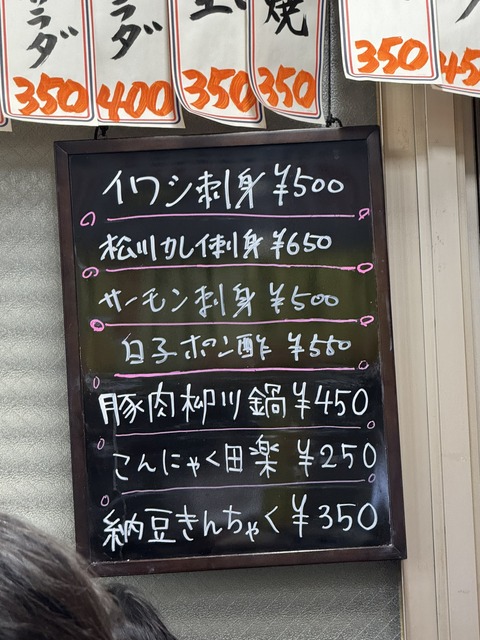 サラダ
350
ラダ
400
350
焼
350
350
イワシ刺身 ¥500
松川カレイ刺身 ¥650
サーモン刺身 ¥500
白子ポン酢 ¥550
豚肉柳川鍋 ¥450
こんにゃく田楽 ¥250
納豆きんちゃく ¥350